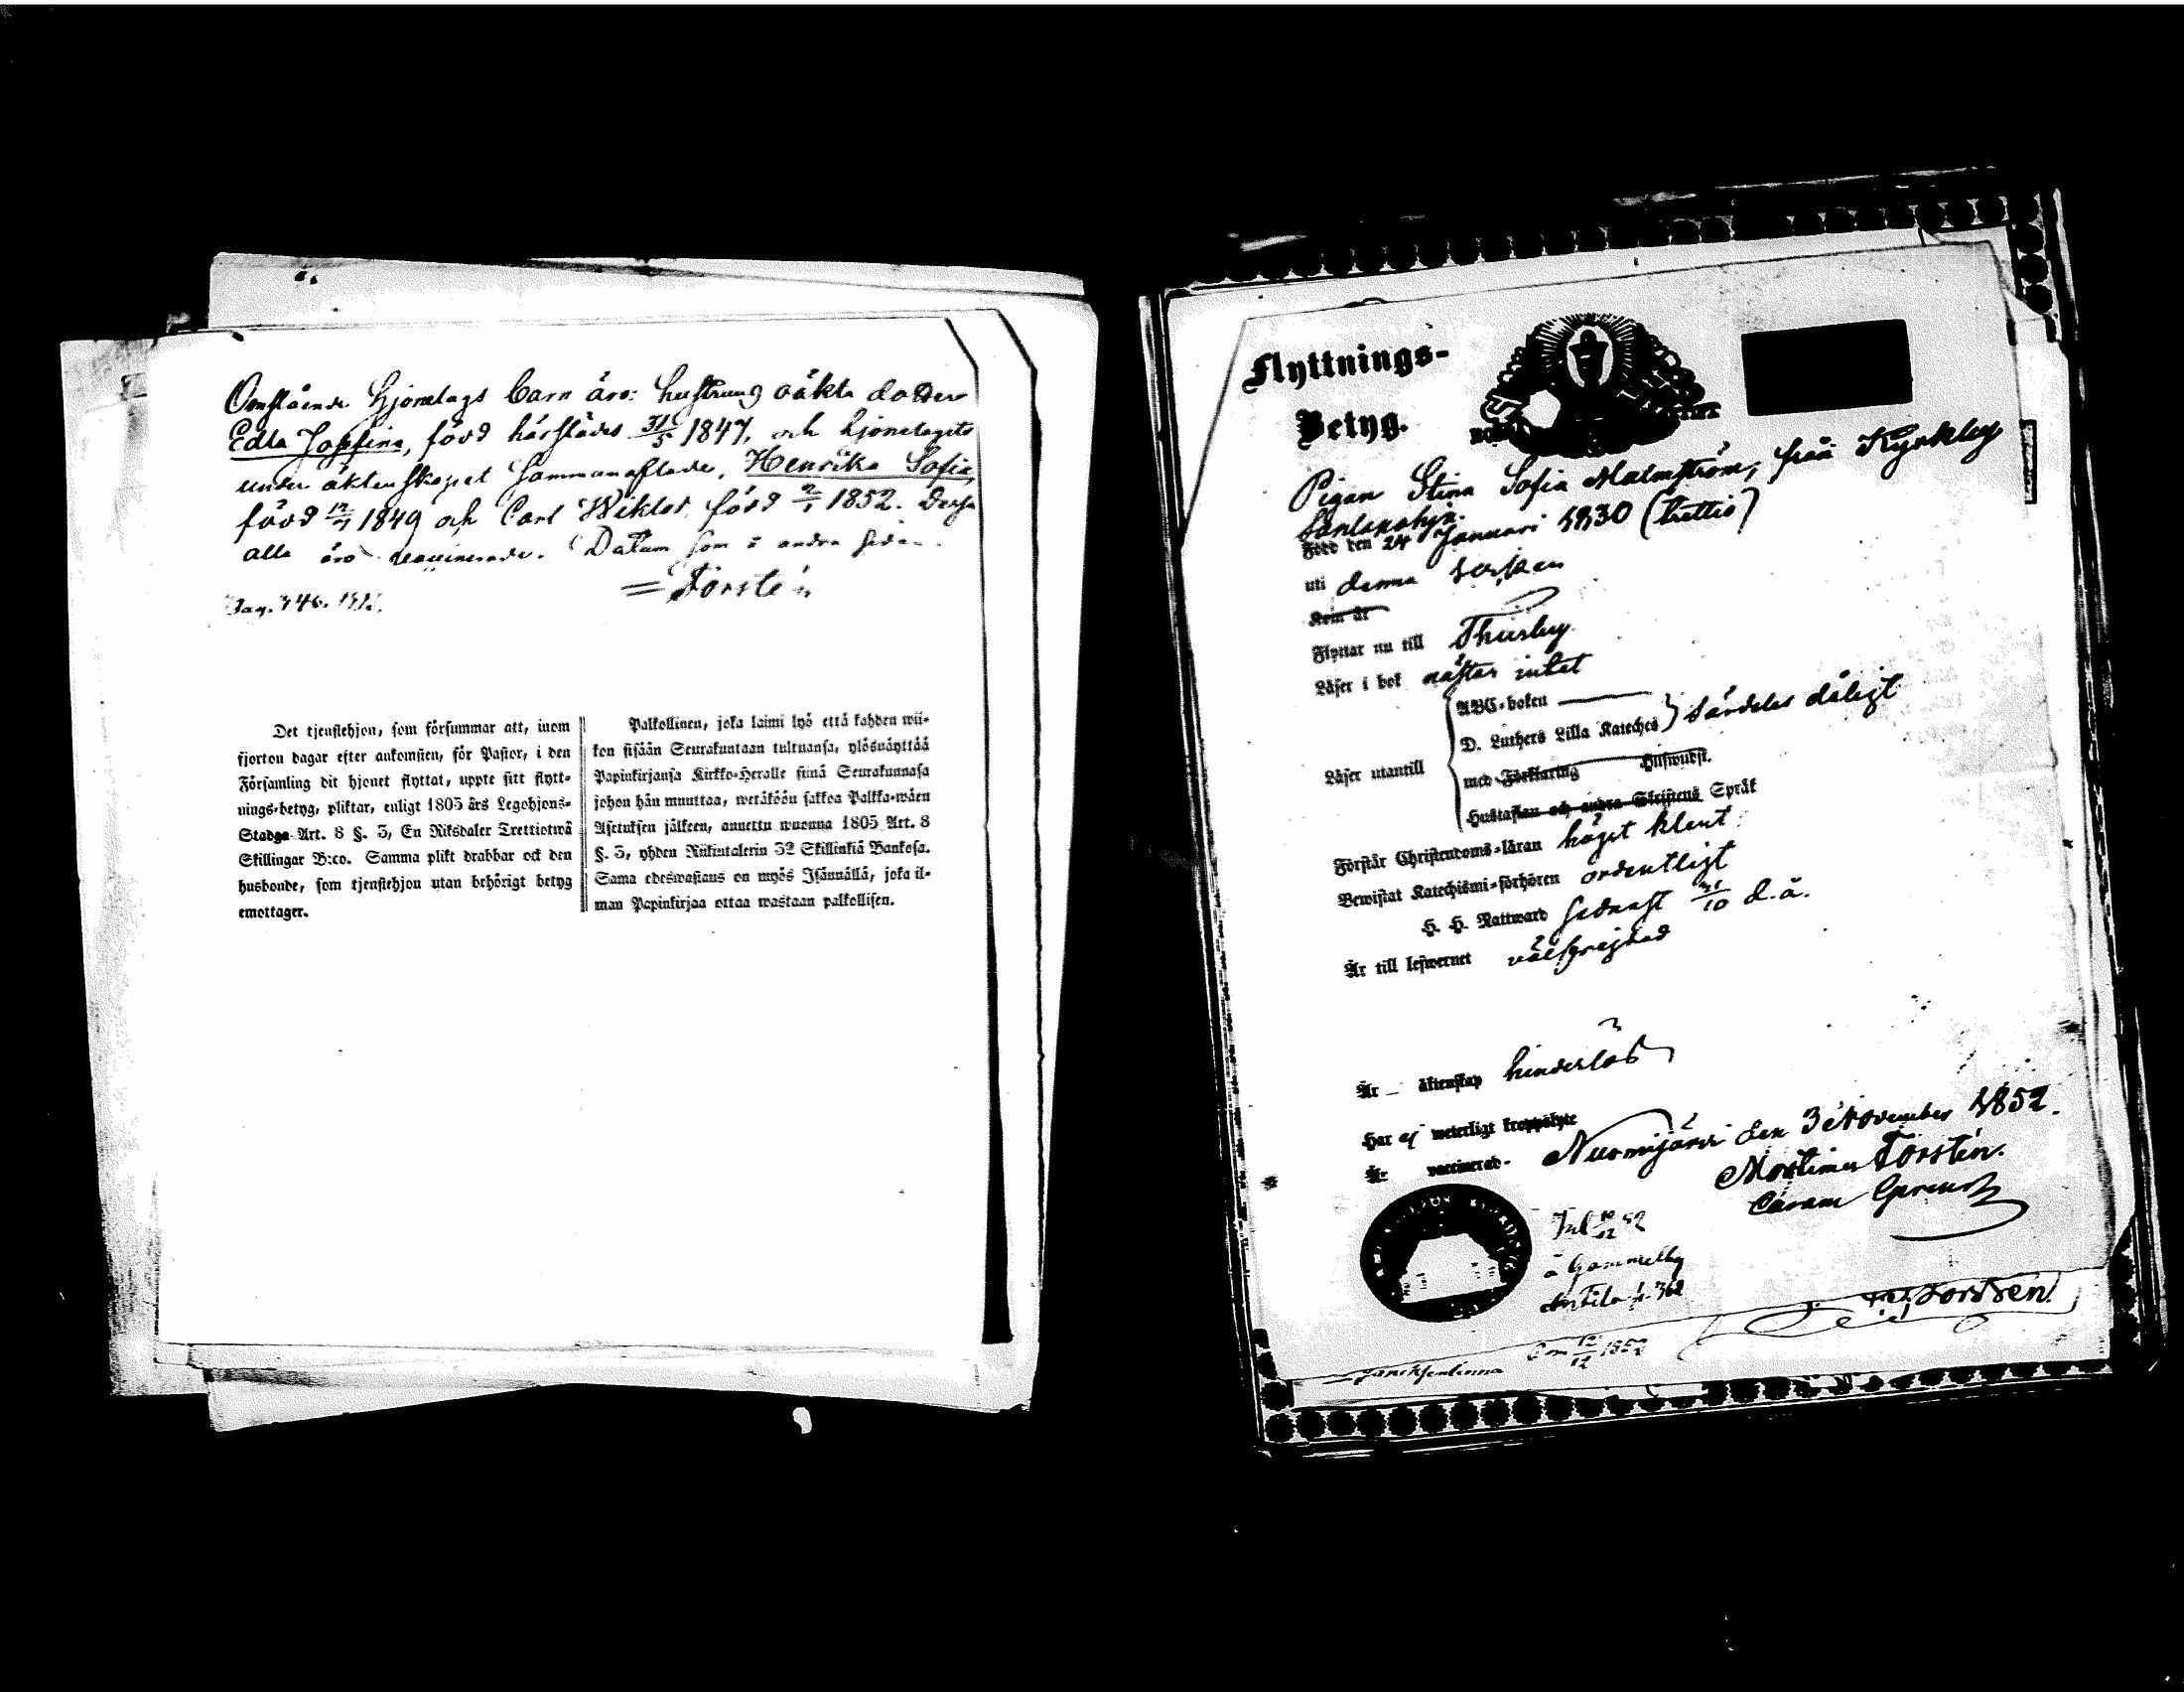 Omstående hjonelags barn äro: hustruns oäkta dotter
Edla Josefina, född härstädes 31/5 1847, och hjonelagets
under äktenskapet sammanaflade, Henrika Sofia,
född 12/7 1849 och Carl Wiktor, född 2/1 1852. Dessa
alla äro vaccinerade. Datum som å andra sidan.
Torstén
Det tjenstehjon, som försummar att, inom
fjorton dagar efter ankomsten, för Pastor, i den
Församling dit hjonet flyttat, uppte sitt flytt-
nings-betyg, pliktar, enligt 1805 års Legohjons-
Stadga Art. 8 §. 3, En Riksdaler Trettiotwå
Skillingar B:co. Samma plikt drabbar ock den
husbonde, som tjenstehjon utan behörigt betyg
emottager.
Palkollinen, joka laimi lyö että kahden wii-
kon sisään Seurakuntaan tultuansa, ylösnäyttää
Papinkirjansa Kirkko-Heralle siinä Seurakunnasa
johon hän muuttaa, wetäköön sakkoa Palkka-wäen
Asetuksen jälkeen, annettu wuonna 1805 Art. 8
§. 3, yhden Riikintalerin 32 Skillinkiä Bankosa.
Sama edeswastaus on myös Isännällä, joka il-
man Papinkirjaa ottaa wastaan palkollisen.
Flyttnings-
Betyg.
Pigan Stina Sofia Malmström, från Kyrkby
Född den 24 Januari 1830 (trettio)
uti denna socken
Kom år
Flyttar nu till Thusby
Läser i bok nästan intet
ABC-boken
Läser utantill D. Luthers Lilla Kateches särdeles dåligt
med Förklaring Hillswudst.
Hustaflan och andra Skriftens Språk
Förstår Christendoms-läran högst klent
Bewistat Katechismi-förhören ordentligt
H. H. Nattward sednast 31/10 d. å.
Är till lefwernet välfrejdad
Är äktenskap hinderlös
Har ej weterligt kroppslyte
Är vaccinerad- Nurmijärvi den 3 November 1852.
Mortimer Torstén.
Inl 10/12 52
å Gammelby
Anttila p. 362
Torstén